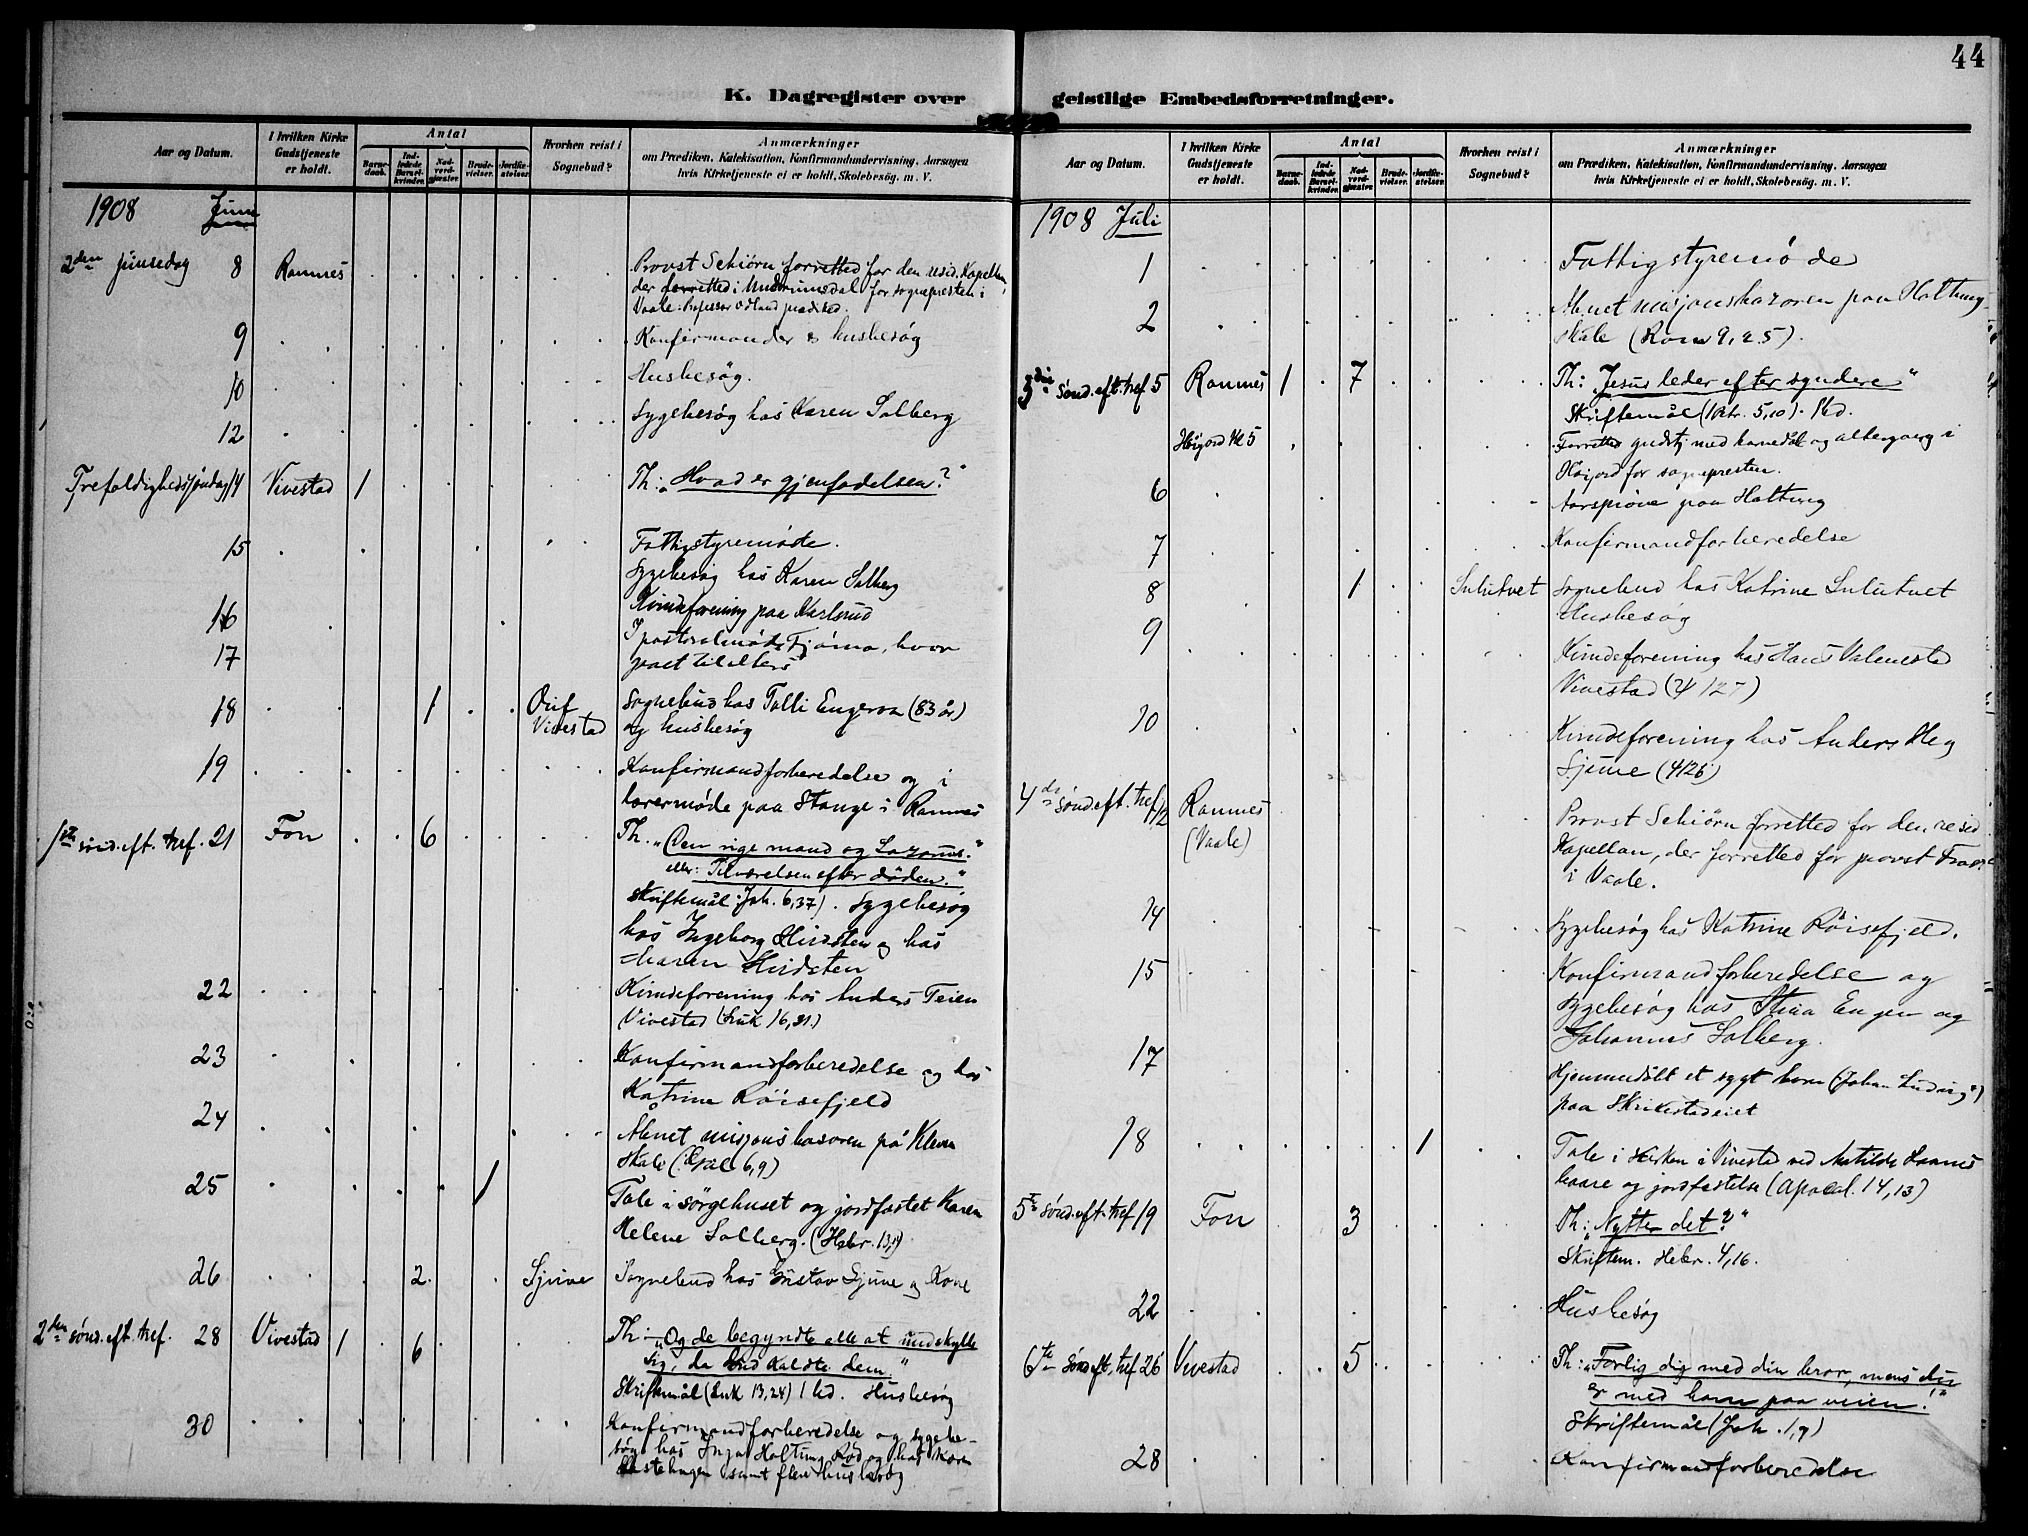 44
K. Dagregister over geistlige Embedsforretninger.
Aar og Datum.
I hvilken Kirke Gudstjeneste er holdt.
Antal
Barne-daab.
Ind-ledede Barsel-kvinder.
Nad-verd-gjæster.
Brude-vielser.
Jordfæ-stelser.
Hvorhen reist i Sognebud?
Anmærkninger
om Prædiken, Katekisation, Konfirmandundervisning, Aarsagen
hvis Kirketjeneste ei er holdt, Skolebesøg. m. V.
1908 Juni
2den pinsedag 8 Ramnes
Provst Schiørn forretted for den resid. Kapellan,
der forretted i Undrumsdal for sognepresten i
Vaale. Professor Odland prædiked.
9 Konfirmander & husbesøg
10 Husbesøg.
12 Sygebesøg hos Karen Solberg
Trefoldighedssøndag 14 Vivestad 1 Th: „Hvad er gjenfødelsen?“
15 Fattigstyremøde.
Sygebesøg hos Karen Solberg
16 Kvindeforening paa Karlsrud
17 I pastoralmøde Tjømø, hvor
18 1 Vivestad Sognebud hos Talli Engeroa (83 år)
og husbesøg
19 Konfirmandforberedelse og i
lærermøde paa Stange i Ramnes
1ste sønd. eft. tref. 21 Fon 6 Th. „Den rige mand og Lazarus.“
eller: Tilværelsen efter døden.“
Skriftemål: Joh. 6,37). Sygebesøg
hos Ingeborg Hvidsten og hos
Maren Hvidsten
22 Kvindeforening hos Anders Teien
Vivestad (Luk 16,31.)
23 Konfirmandforberedelse og hos
Katrine Röisefjeld
24 Åbnet misjonsbasaren på Klevn
Skole (Gal 6,9)
25 1 Tale i sørgehuset og jordfæstet Karen
Helene Solberg. (Hebr. 13,14)
26 2 Sjuve Sognebud hos Gustav Sjuve og Kone
2den sønd. eft. tref. 28 Vivestad 1 6 Th: „Og de begyndte alle at undskylde
sig, da Gud kaldte dem.“
Skriftemål (Luk 13,24) 1 kd. Husbesøg
30 Konfirmandforberedelse og sygebe-
søg hos Inga Holtung Rød og hos Karen
samt flere husbesøg
Aar og Datum.
I hvilken Kirke Gudstjeneste er holdt.
Antal
Barne-daab.
Ind-ledede Barsel-kvinder.
Nad-verd-gjæster.
Brude-vielser.
Jordfæ-stelser.
Hvorhen reist i Sognebud?
Anmærkninger
om Prædiken, Katekisation, Konfirmandundervisning, Aarsagen
hvis Kirketjeneste ei er holdt, Skolebesøg. m. V.
1908 Juli
1 Fattigstyremøde
2 Åbnet misjonsbazaren paa Holtung
skole (Rom 9, 2.5).
3die sønd. eft. tref 5 Ramnes 1 7 Th: „Jesus leder efter syndere“
Skriftemål (1 Petr. 5,10). 1 kd.
Høijord Kl 5 Forretted gudstj med barnedåb og altergang i
Høijord for sognepresten.
6 Aarsprøve paa Holtung
7 Konfirmandforberedelse
8 1 Sulutvet Sognebud hos Katrine Sulutvet
Husbesøg
9 Kvindeforening hos Hans Valmestad
Vivestad (ψ 127)
10 Kvindeforening hos Anders Heg
Sjuve (ψ 126)
4de sønd. eft. tref 12 Ramnes
(Vaale)
Provst Schiørn forretted for den resid
Kapellan, der forretted for provst
i Vaale.
14 Sygebesøg hos Katrine Röisefjeld.
15 Konfirmandforberedelse og
Sygebesøg hos Stina Engen og
Johannes Solberg.
17 Hjemmedøbt et sygt barn (Johan Ludvig)
paa Skrikestadeiet
18 1 Tale i kirken i Vivestad ved Matilde
baare og jordfæstelse (Apocal. 14,13)
5te sønd. eft. tref 19 Fon 3 Th: „Nytter det?“
Skriftem. Hebr. 4,16.
22 Husbesøg
6te sønd eft. tref 26 Vivestad 5 Th: „Forlig dig med din bror, mens du
er med ham paa veien!“
Skriftemål (Joh. 1,9)
28 Konfirmandforberedelse